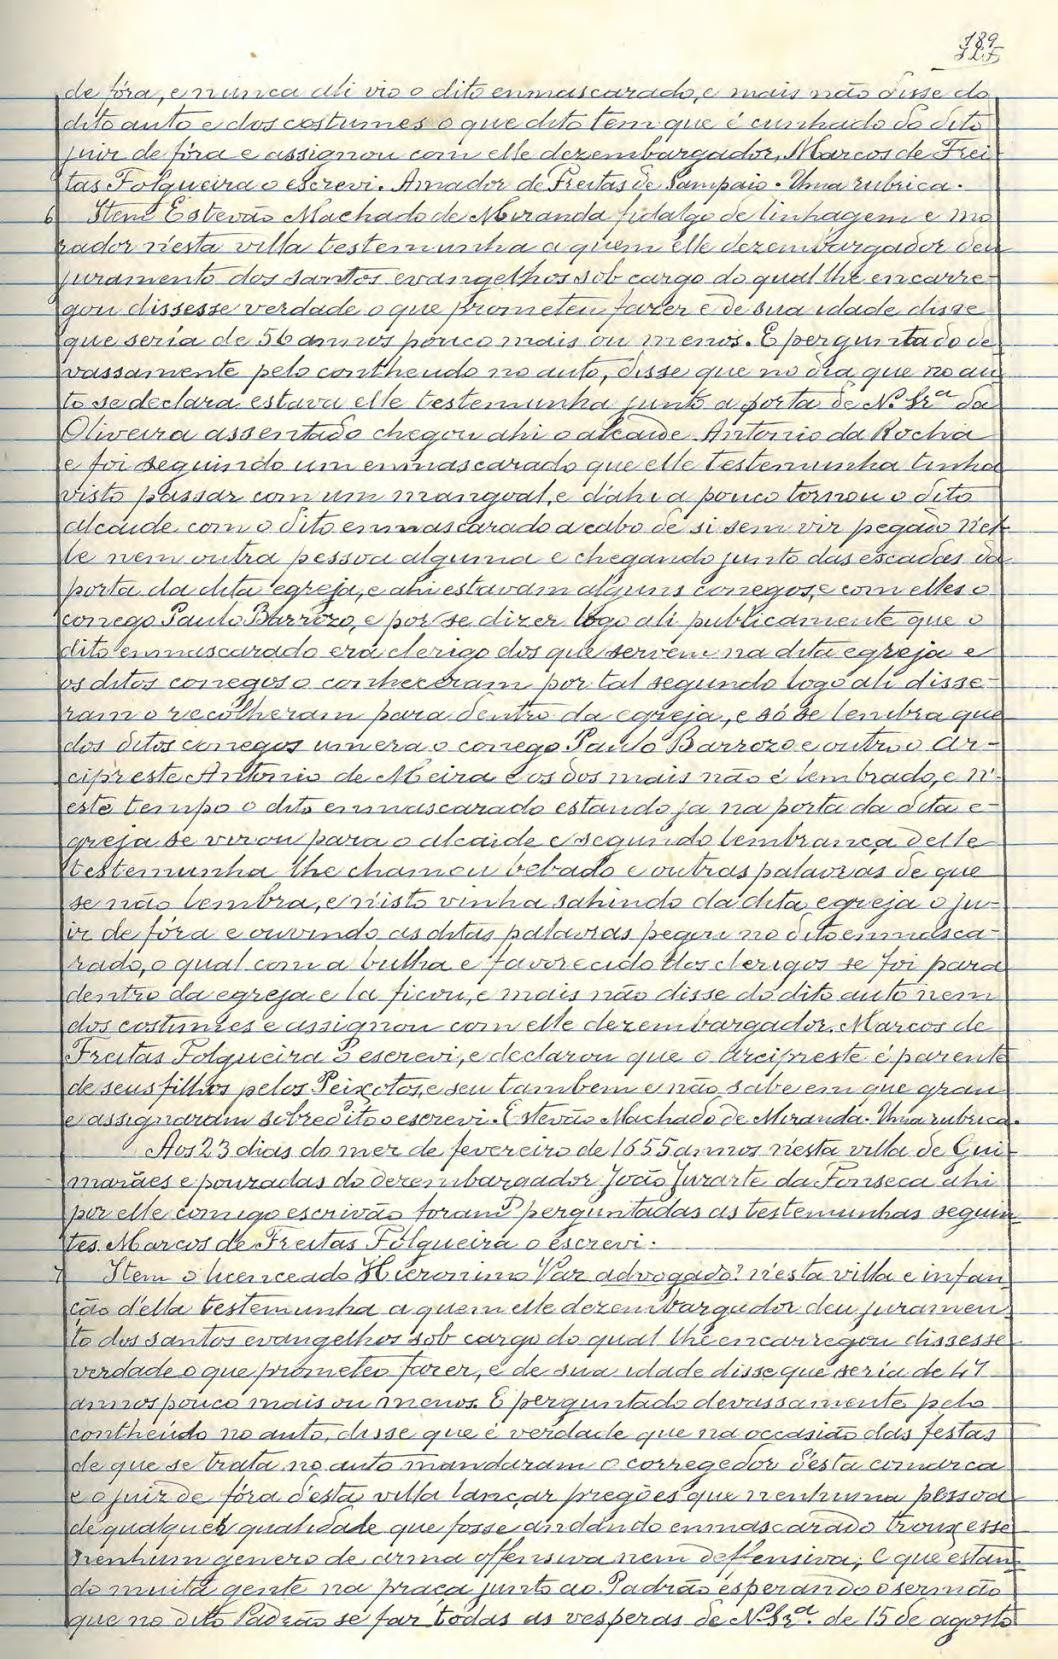 189
de fóra, e nunca ali vio o dito enmascarado, e mais não disse do
dito auto e dos costumes o que dito tem que é cunhado do dito
juir de fóra e assignou com elle dezembargador, Marcos de Frei-
tas Folgueira o escrevi. Amador de Freitas de Sampaio. Uma rubrica.
6 Item Estevão Machado de Miranda fidalgo de linhagem e mo
rador n'esta villa testemunha a quem elle dezembargador deu
juramento dos santos evangelhos sob cargo do qual lhe encarre-
gou dissesse verdade o que prometeu fazer e de sua idade disse
que seria de 56 annos pouco mais ou menos. E perguntado de
vassamente pelo contheudo no auto, disse que no dia que no au
to se declara estava elle testemunha junto a porta de N. Srª da
Oliveira assentado chegou ahi o alcaide Antonio da Rocha
e foi seguindo um enmascarado que elle testemunha tinha
visto passar com um mangoal, e d'ahi a pouco tornou o dito
alcaide com o dito enmascarado a cabo de si sem vir pegado n'el-
le nem outra pessoa alguma e chegando junto das escadas da
porta da dita egreja, e ahi estavam alguns conegos, e com elles o
conego Paulo Barrozo, e por se dizer logo ali publicamente que o
dito enmascarado era clerigo dos que servem na dita egreja e
os ditos conegos o conheceram por tal segundo logo ali disse-
ram o recolheram para dentro da egreja, e só se lembra que
dos ditos conegos um era o conego Paulo Barrozo e outro o Ar-
cipreste Antonio de Meira e os dos mais não é lembrado, e n'-
este tempo o dito enmascarado estando ja na porta da dita e-
greja se virou para o alcaide e segundo lembrança delle
testemunha lhe chamou bebado e outras palavras de que
se não lembra, e n'isto vinha sahindo da dita egreja o ju-
ir de fóra e ouvindo as ditas palavras pegou no dito enmasca-
rado, o qual com a bulha e favorecido dos clerigos se foi para
dentro da egreja e la ficou, e mais não disse do dito auto nem
dos costumes e assignou com elle dezembargador. Marcos de
Freitas Folgueira o escrevi, e declarou que o Arcipreste é parente
de seus filhos pelos Peixotos, e seu tambem e não sabe em que grau
e assignaram sobredito o escrevi. Estevão Machado de Miranda. Uma rubrica.
Aos 23 dias do mez de fevereiro de 1655 annos n'esta villa de Gui-
marães e pouzadas do dezembargador João Jurarte da Fonseca ahi
por elle comigo escrivão foram perguntadas as testemunhas seguin-
tes. Marcos de Freitas Folgueira o escrevi.
7 Item o licenceado Hieronimo Vaz advogado n'esta villa e infan-
ção d'ella testemunha a quem elle dezembargador deu juramen-
to dos santos evangelhos sob cargo do qual lhe encarregou dissesse
verdade o que prometeo fazer, e de sua idade disse que seria de 47
annos pouco mais ou menos. E perguntado devassamente pelo
contheúdo no auto, disse que é verdade que na occasião das festas
de que se trata no auto mandaram o corregedor d'esta comarca
e o juiz de fóra d'esta villa lançar pregões que nenhuma pessoa
de qualquer qualidade que fosse andando enmascarado trouxesse
nenhum genero de arma offensiva nem deffensiva; e que estan-
do muita gente na praça junto ao Padrão esperando o sermão
que no dito Padrão se faz todas as vesperas de N. Srª. de 15 de agosto